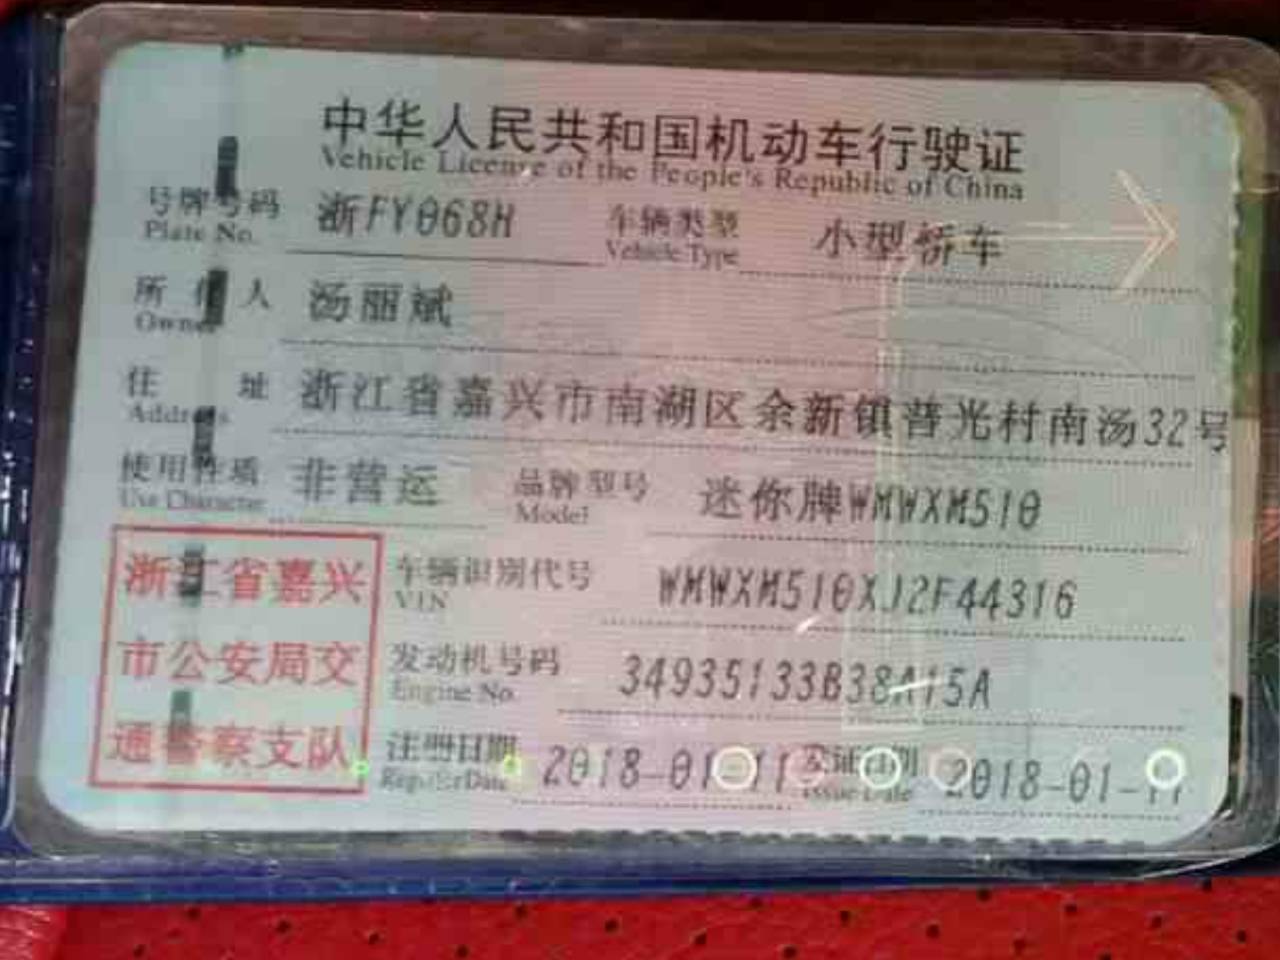 中华人民共和国机动车行驶证
Vehicle License of the People's Republic of China
号牌号码 浙FY068H 车辆类型 小型轿车
Plate No. Vehicle Type
所有人 汤丽斌
Owner
住址 浙江省嘉兴市南湖区余新镇普光村南汤32号
Address
使用性质 非营运 品牌型号 迷你牌WMWXM510
Use Character Model
浙江省嘉兴
市公安局交
通警察支队
车辆识别代号 WMWXM510XJ2F44316
VIN
发动机号码 34935133B38A15A
Engine No.
注册日期 2018-01-11 发证日期 2018-01-11
Register Date Issue Date